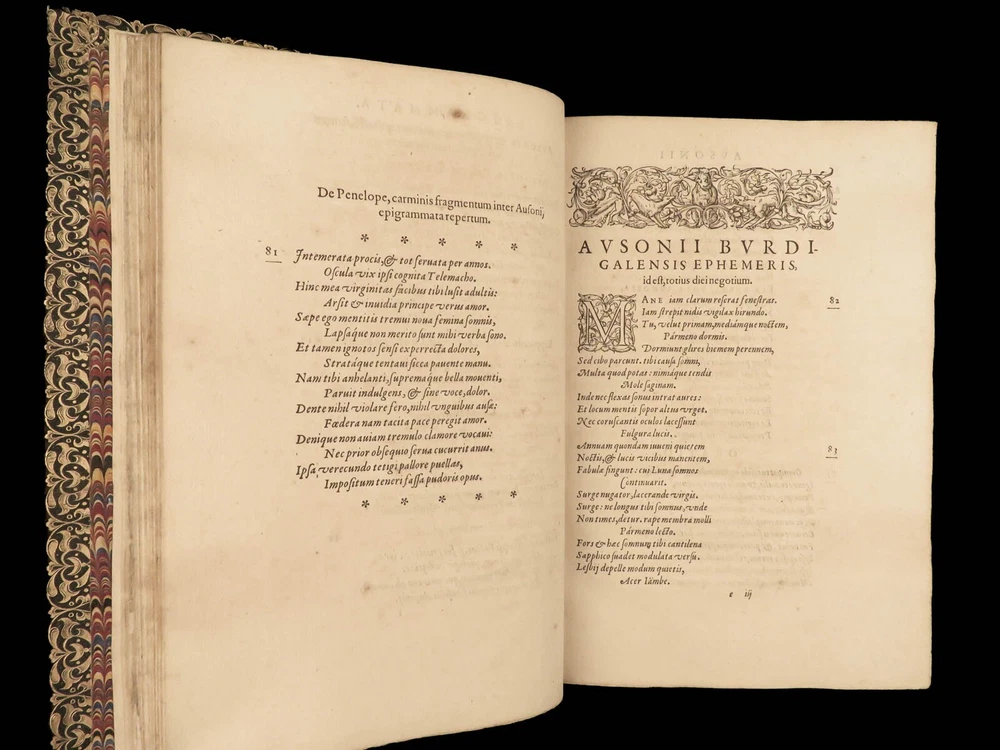 De Penelope, carminis fragmentum inter Ausoni,
epigrammata repertum.
* * * * *
81
Intemerata procis, & tot seruata per annos.
Oscula vix ipsi cognita Telemacho.
Hinc mea virginitas facibus tibi lusit adultis:
Arsit & inuidia principe verus amor.
Sæpe ego mentitis tremui noua femina somnis,
Lapsáque non merito sunt mihi verba sono.
Et tamen ignotos sensi experrecta dolores,
Stratáque tentaui sicca pauente manu.
Nam tibi anhelanti, supremáque bella mouenti,
Paruit indulgens, & sine voce, dolor.
Dente nihil violare fero, nihil vnguibus ausæ:
Fœdera nam tacita pace peregit amor.
Denique non auiam tremulo clamore vocaui:
Nec prior obsequio serua cucurrit anus.
Ipsa verecundo tetigi pallore puellas,
Impositum teneri fassa pudoris opus.
* * * * *
AVSONII BVRDI-
GALENSIS EPHEMERIS,
id est, totius diei negotium.
MANE iam clarum reserat fenestras. 82
Iam strepit nidis vigilax hirundo.
Tu, velut primam, mediámque noctem,
Pármeno dormis.
Dormiunt glires hiemem perennem,
Sed cibo parcunt. tibi causa somni,
Multa quod potas: nimiáque tendis
Mole saginam.
Inde nec flexas sonus intrat aures:
Et locum mentis sopor altus vrget.
Nec coruscantis oculos lacessunt
Fulgura lucis.
Annuam quondam iuueni quietem 83
Noctis, & lucis vicibus manentem,
Fabula fingunt: cui Luna somnos
Continuarit.
Surge nugator, lacerande virgis.
Surge: ne longus tibi somnus, vnde
Non times, detur. rape membra molli
Pármeno lecto.
Fors & hæc somnum tibi cantilena
Sapphico suadet modulata versu.
Lesbij depelle modum quietis,
Acer Iámbe.
e iij